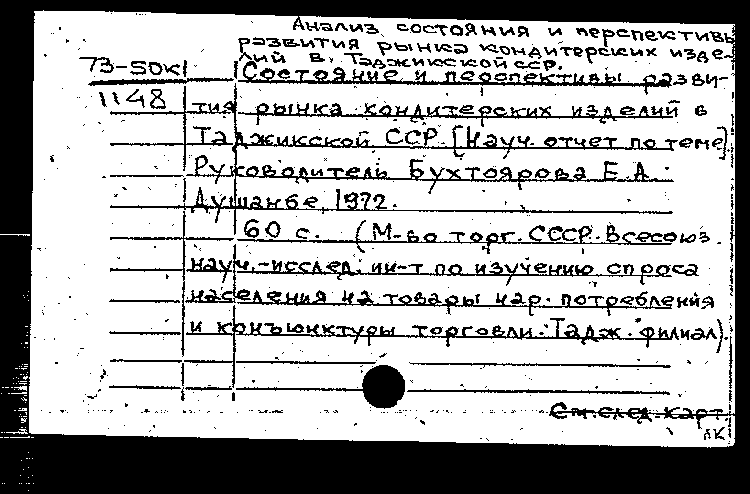 Анализ состояния и перспективы
развития рынка кондитерских изде-
лий в Таджикской ССР.
73-5ок Состояние и перспективы разви-
1148 тия рынка кондитерских изделий в
Таджикской ССР. [Науч. отчет по теме].
Руководитель Бухтоярова Е.А.
Душанбе, 1972.
60 с. (М-во торг. СССР. Всесоюз.
науч.-исслед. ин-т по изучению спроса
населения на товары нар. потребления
и конъюнктуры торговли. Тадж. филиал).
См. след. карт.
лк